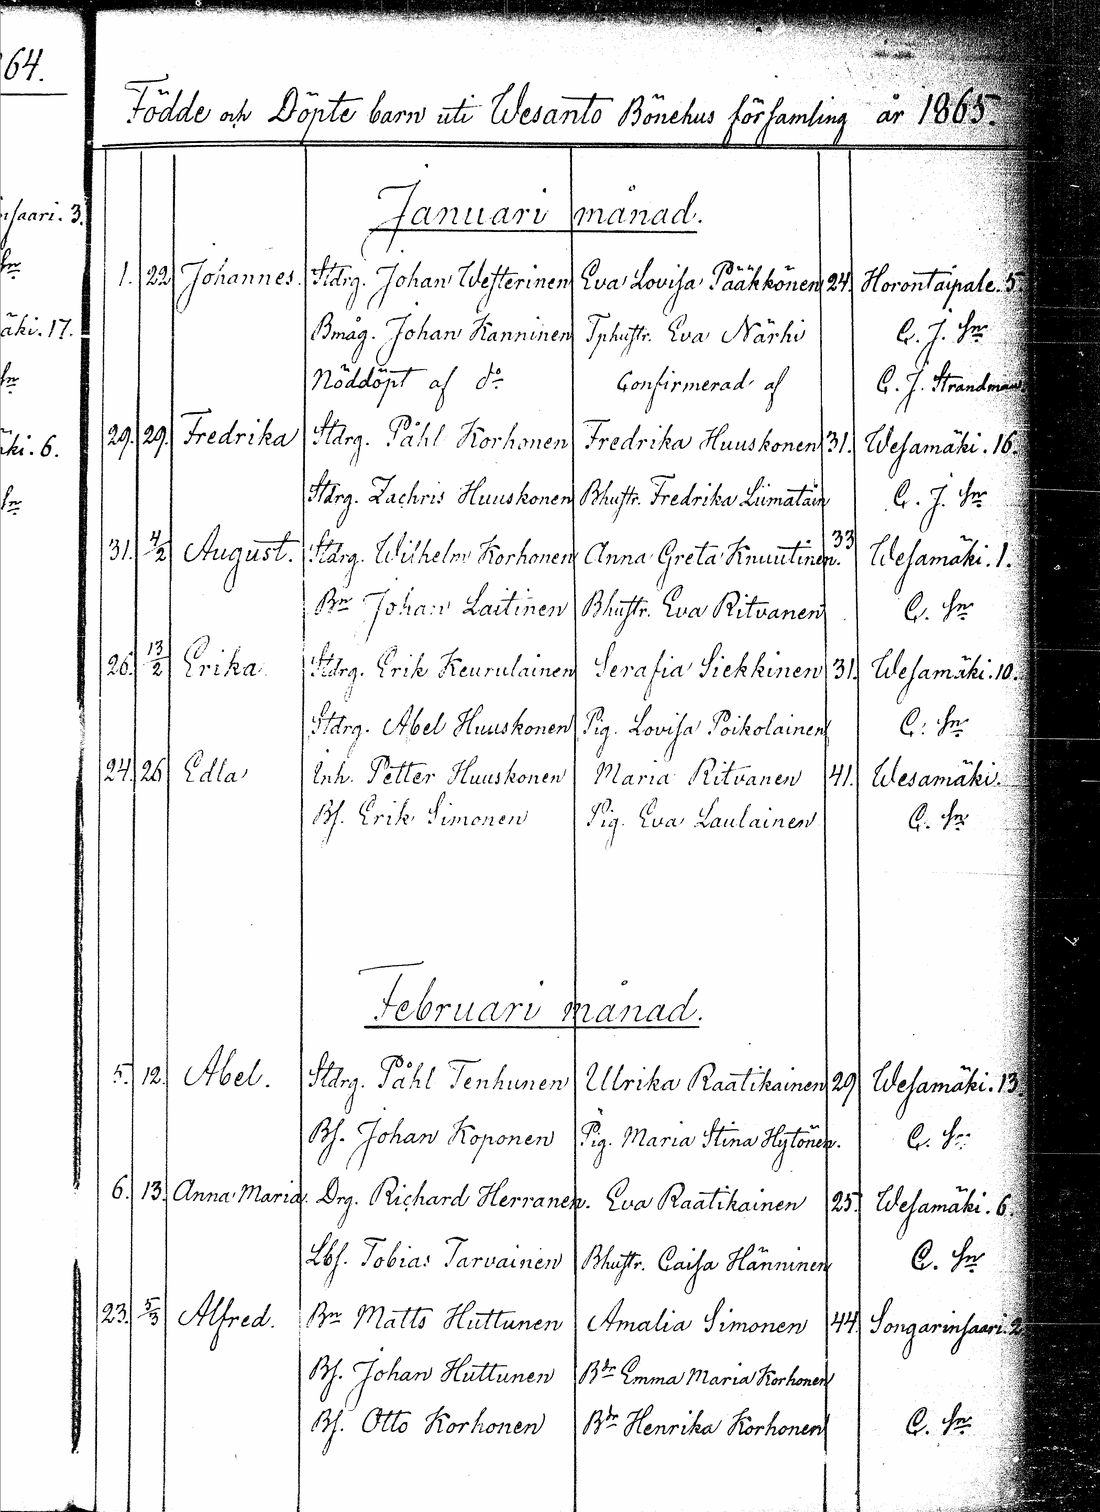 64.
Födde och Döpte barn uti Wesanto Bönehus församling år 1865.
saari. 3.
Januari månad.
1. 22 Johannes. Stdrg. Johan Westerinen Eva Lovisa Pääkkönen 24. Horontaipale. 5
äki. 17. Bmåg. Johan Kanninen Tphustr. Eva Närhi C. J. Sn
Sn Nöddöpt af do Confirmerad af C. J. Strandman
ki. 6. 29. 29. Fredrika Stdrg. Påhl Korhonen Fredrika Huuskonen 31. Wesamäki. 16.
Sn Stdrg. Zachris Huuskonen Bhustr. Fredrika Liimatain C. J. Sn
31. 4/2 August. Stdrg. Wilhelm Korhonen Anna Greta Knuutinen. 33 Wesamäki. 1.
Bn Johan Laitinen Bhustr. Eva Ritvanen C. Sn
26. 13/2 Erika Stdrg. Erik Keurulainen Serafia Siekkinen 31. Wesamäki. 10.
Stdrg. Abel Huuskonen Pig. Lovisa Poikolainen C. Sn
24. 26 Edla Inh. Petter Huuskonen Maria Ritvanen 41. Wesamäki.
Bs. Erik Simonen Pig. Eva Laulainen C. Sn
Februari månad.
5. 12. Abel. Stdrg. Påhl Tenhunen Ulrika Raatikainen 29 Wesamäki. 13.
Bs. Johan Koponen Pig. Maria Stina Hytönen. C. Sn
6. 13. Anna Maria. Drg. Richard Herranen. Eva Raatikainen 25. Wesamäki. 6.
Lbs. Tobias Tarvainen Bhustr. Caisa Hänninen C. Sn
23. 5/3 Alfred. Bn Matts Huttunen Amalia Simonen 44. Songarinsaari. 2
Bs. Johan Huttunen Bdr Emma Maria Korhonen
Bs. Otto Korhonen Bdr Henrika Korhonen C. Sn